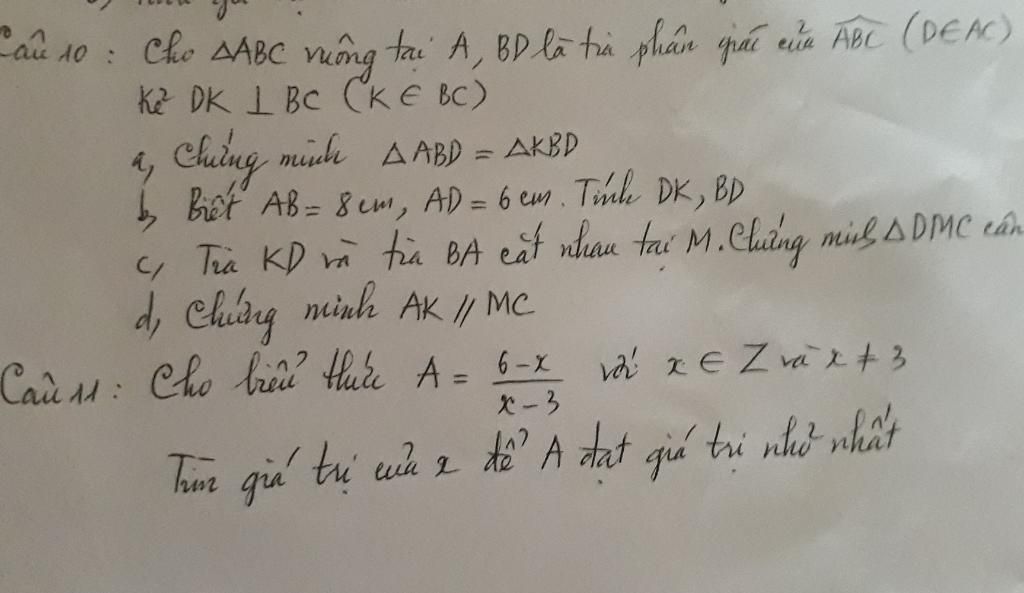 Câu 10 : Cho ΔABC vuông tại A, BD là tia phân giác của ABC (D∈AC)
Kẻ DK ⊥ BC (K ∈ BC)
a, Chứng minh ΔABD = ΔKBD
b, Biết AB = 8 cm, AD = 6 cm. Tính DK, BD
c, Tia KD và tia BA cắt nhau tại M. Chứng minh ΔDMC cân
d, Chứng minh AK // MC
Câu 11 : Cho biểu thức A = \frac{6-x}{x-3} với x ∈ Z và x ≠ 3
Tìm giá trị của x để A đạt giá trị nhỏ nhất